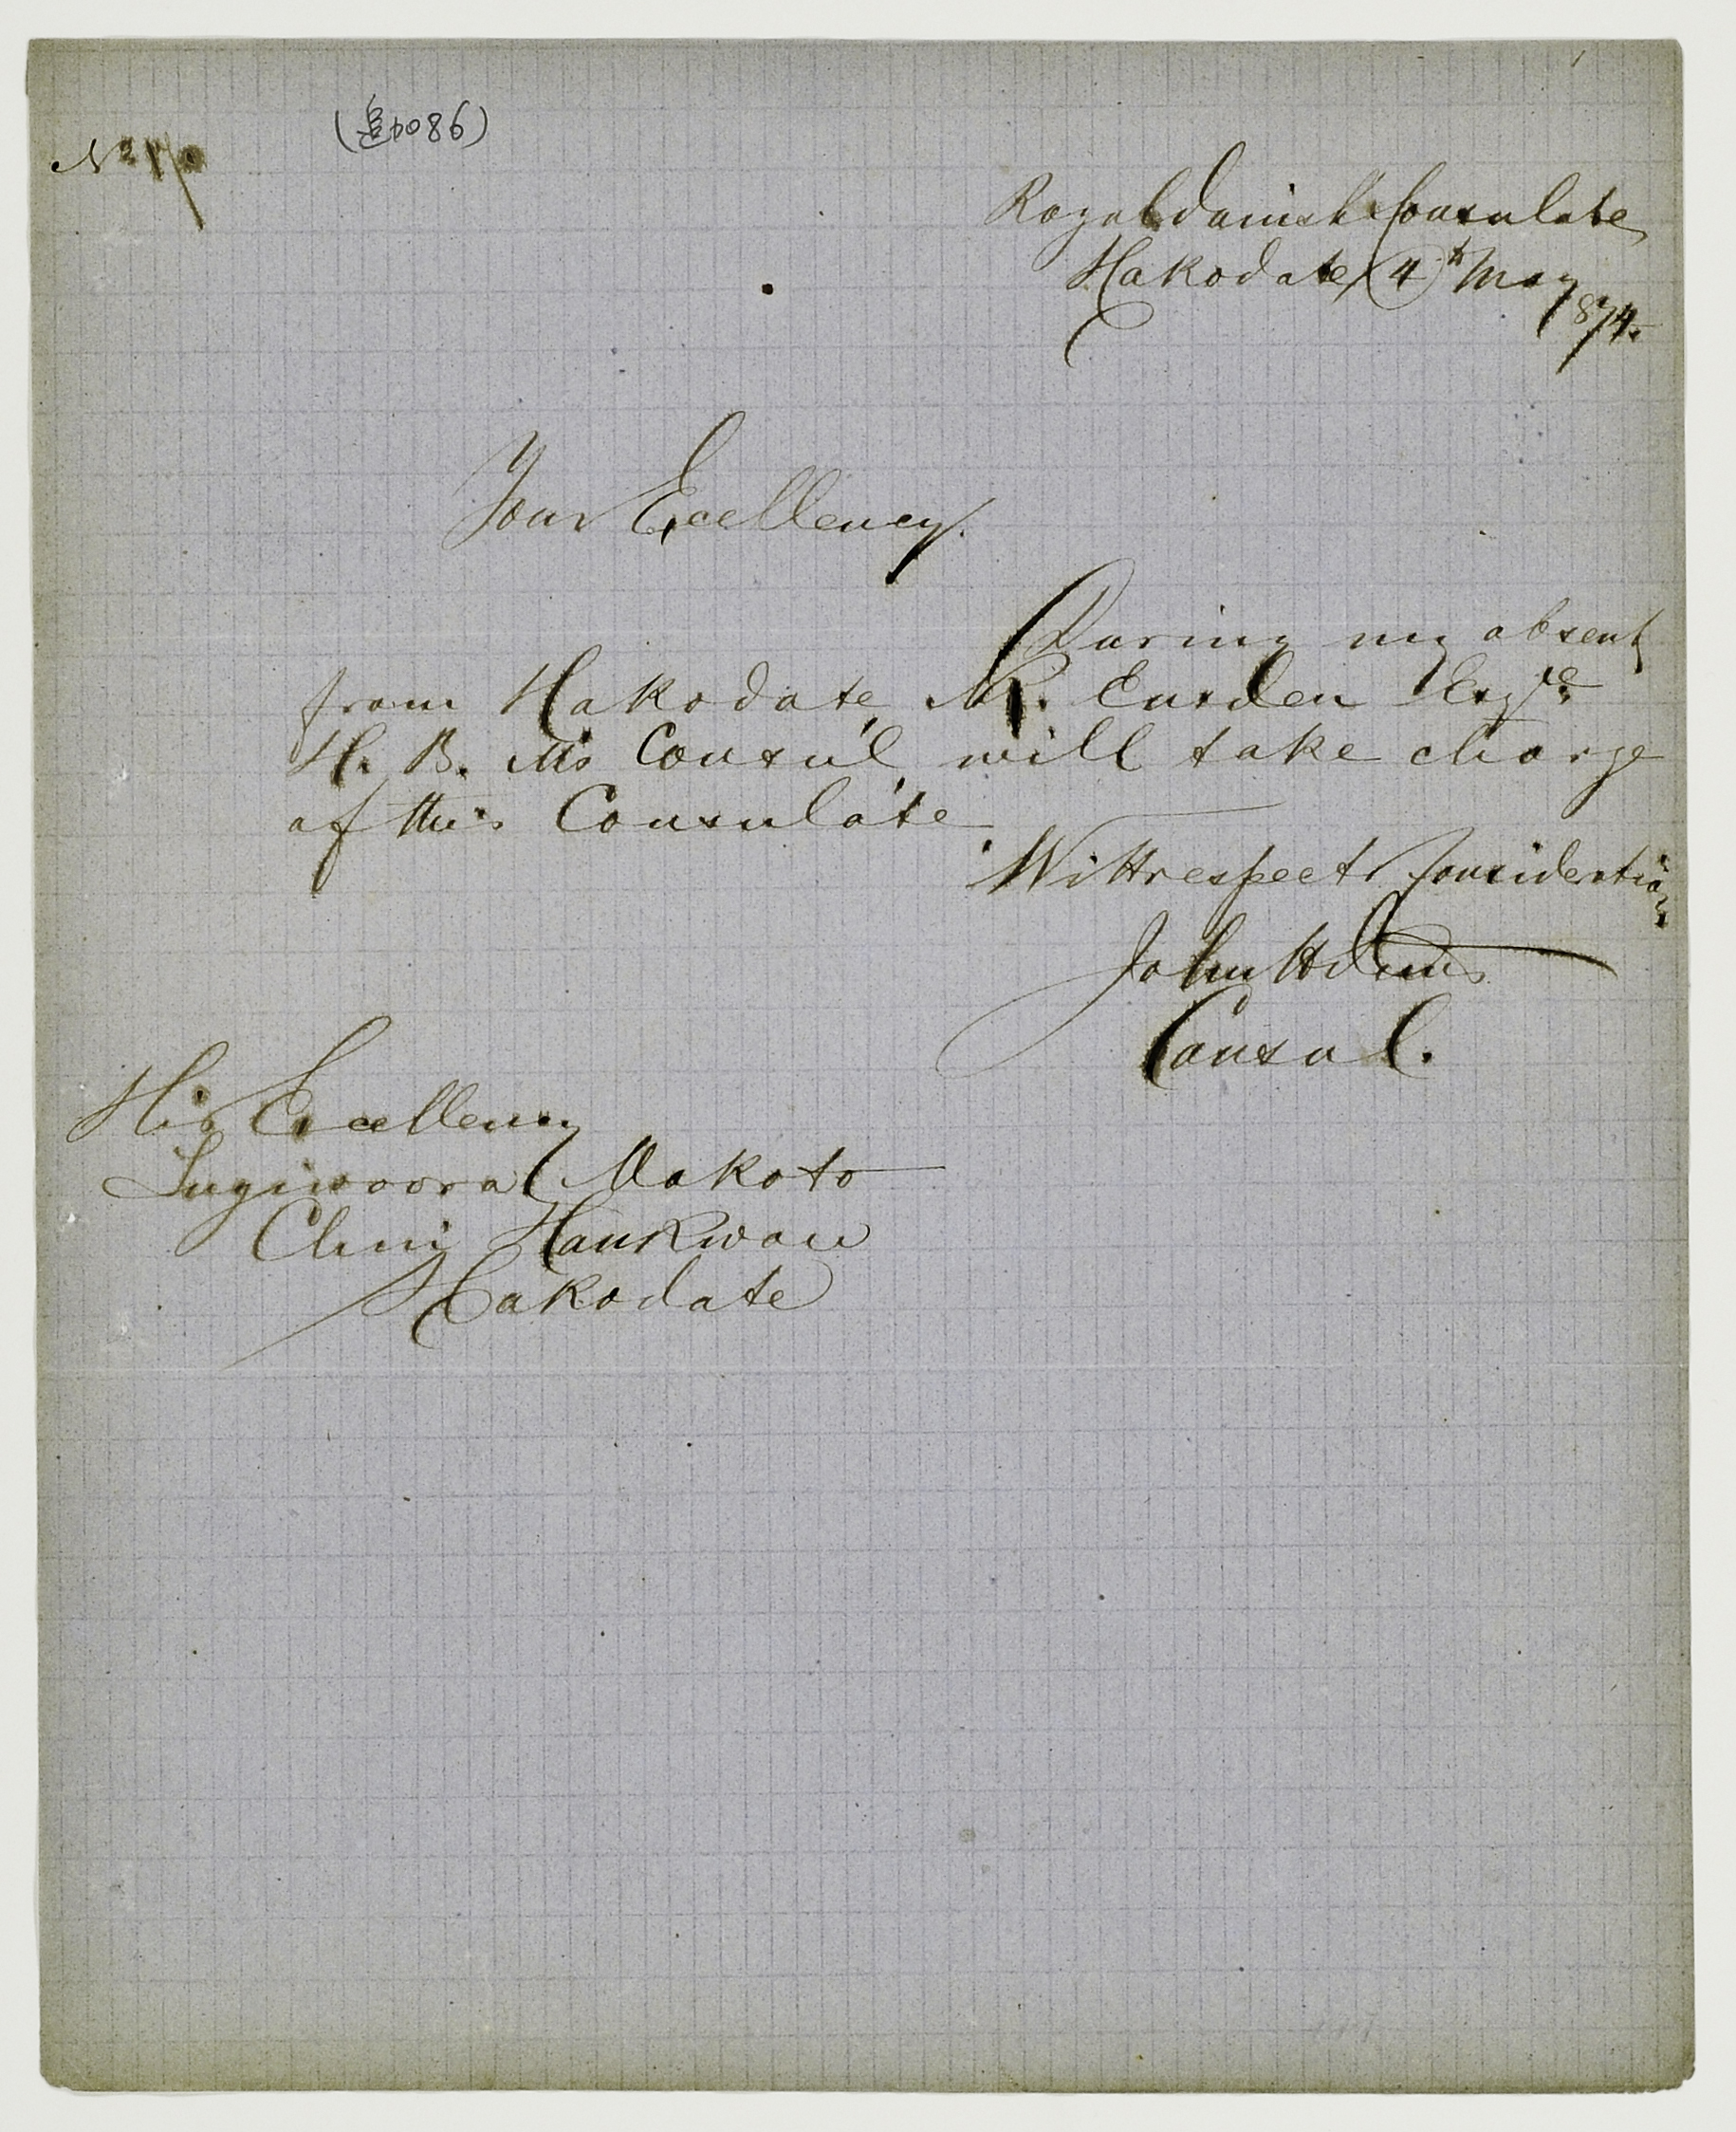 (追加086)
Nº
Royal Danish Consulate
Hakodate 4th May
1874.
Your Excellency.
During my absent
from Hakodate R. Eusden Esqre.
H. B. M's Consul will take charge
of this Consulate
With respect Consideration
John H Duus
Consul.
His Excellency
Sugiwoora Makoto
Chiuj Hankwan
Hakodate